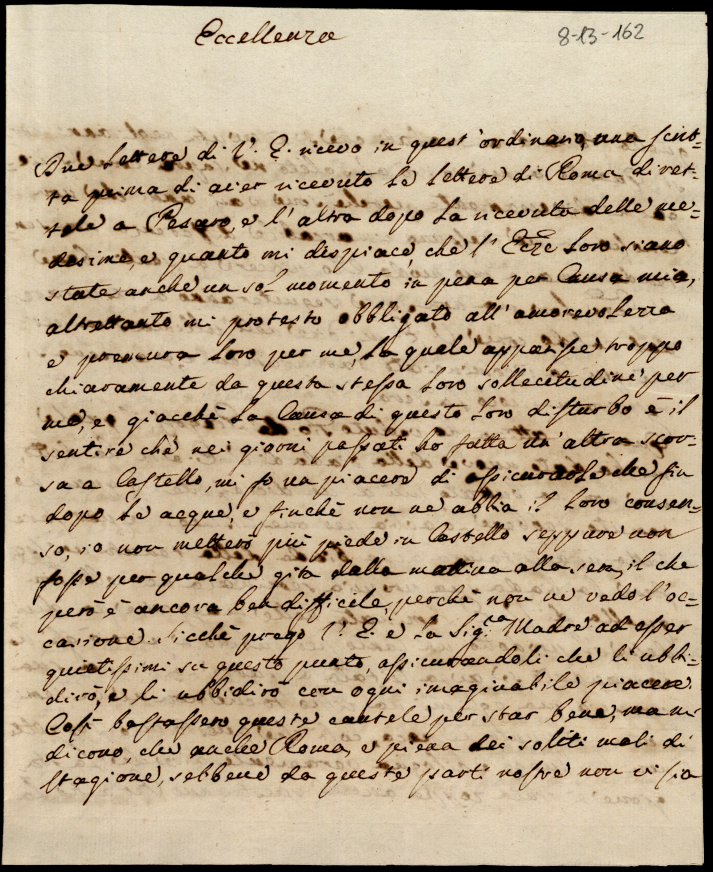 Eccellenza
8-13-162
Due Lettere di V. E. ricevo in quest'ordinario, una scrit=
ta prima di aver ricevuto le lettere di Roma diret=
tele a Pesaro, e l'altra dopo la ricevuta delle me=
desime, e quanto mi dispiace, che l'Ecc.ze Loro siano
state anche un sol momento in pena per Causa mia,
altrettanto mi protesto obbligato all'amorevolezza
e premura Loro per me, la quale apparisce troppo
chiaramente da questa stessa loro sollecitudine per
me, e giacchè la Causa di questo loro disturbo è il
sentire che nei giorni passati ho fatta un'altra scor=
sa a Castello, mi fo un piacere di assicurarle che fin
dopo le acque, e finchè non ne abbia il loro consen=
so, io non metterò più piede in Castello seppure non
fosse per qualche gita dalla mattina alla sera, il che
però è ancora ben difficile, perchè non ne vedo l'oc=
casione. Sicchè prego V. E. e la Sig.ra Madre ad esser
quietissimi su questo punto, assicurandoli che li ubbi=
dirò, e li ubbidirò con ogni imaginabile piacere.
Così bastassero queste cautele per star bene, ma mi
dicono, che anche Roma, è piena dei soliti mali di
stagione, sebbene da queste parti nostre non vi sia